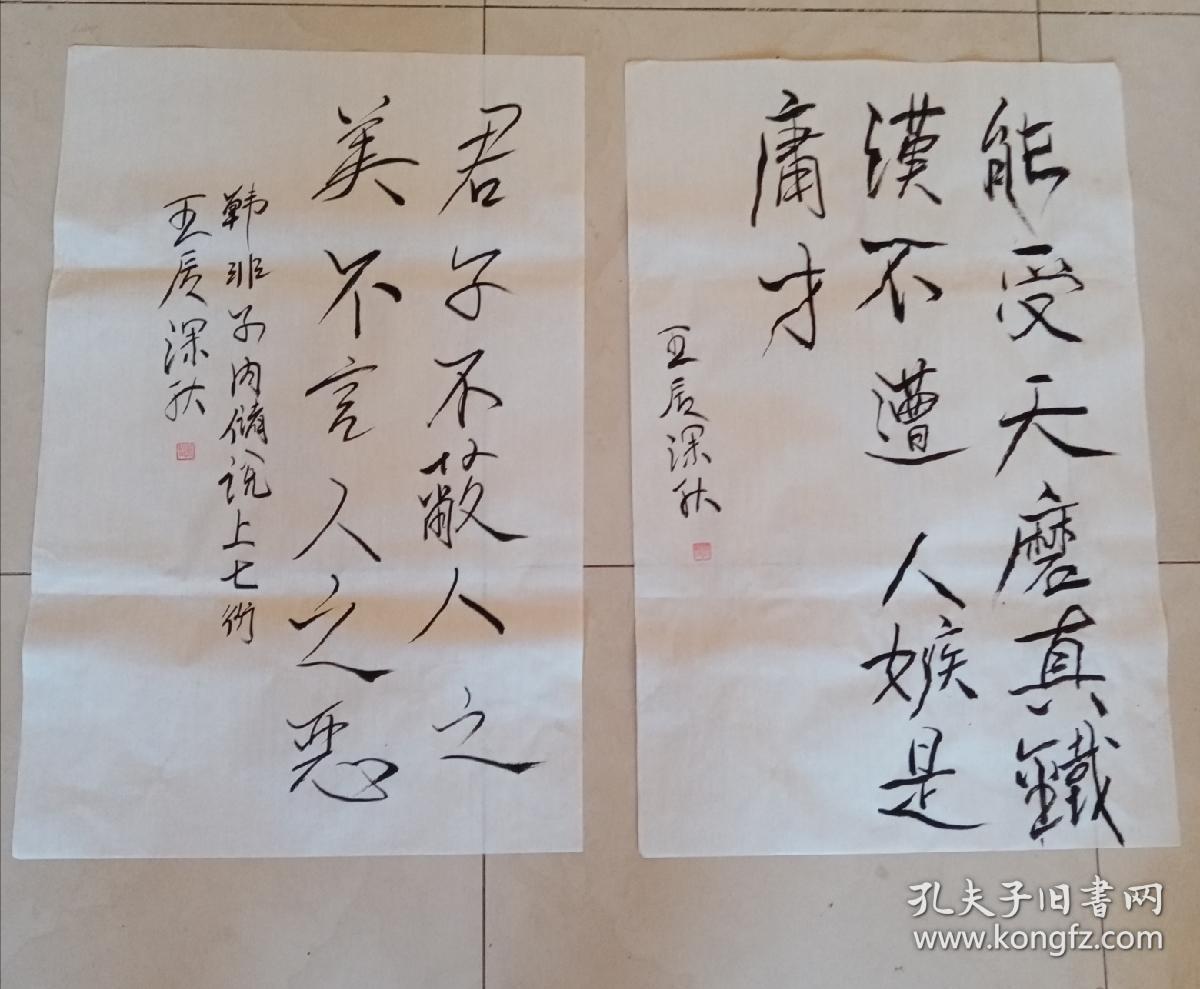 能受天磨真鐵
漢不遭人嫉是
庸才
壬辰深秋
君子不蔽人之
美不言人之惡
韩非子内儲説上七術
壬辰深秋
孔夫子旧书网
www.kongfz.com